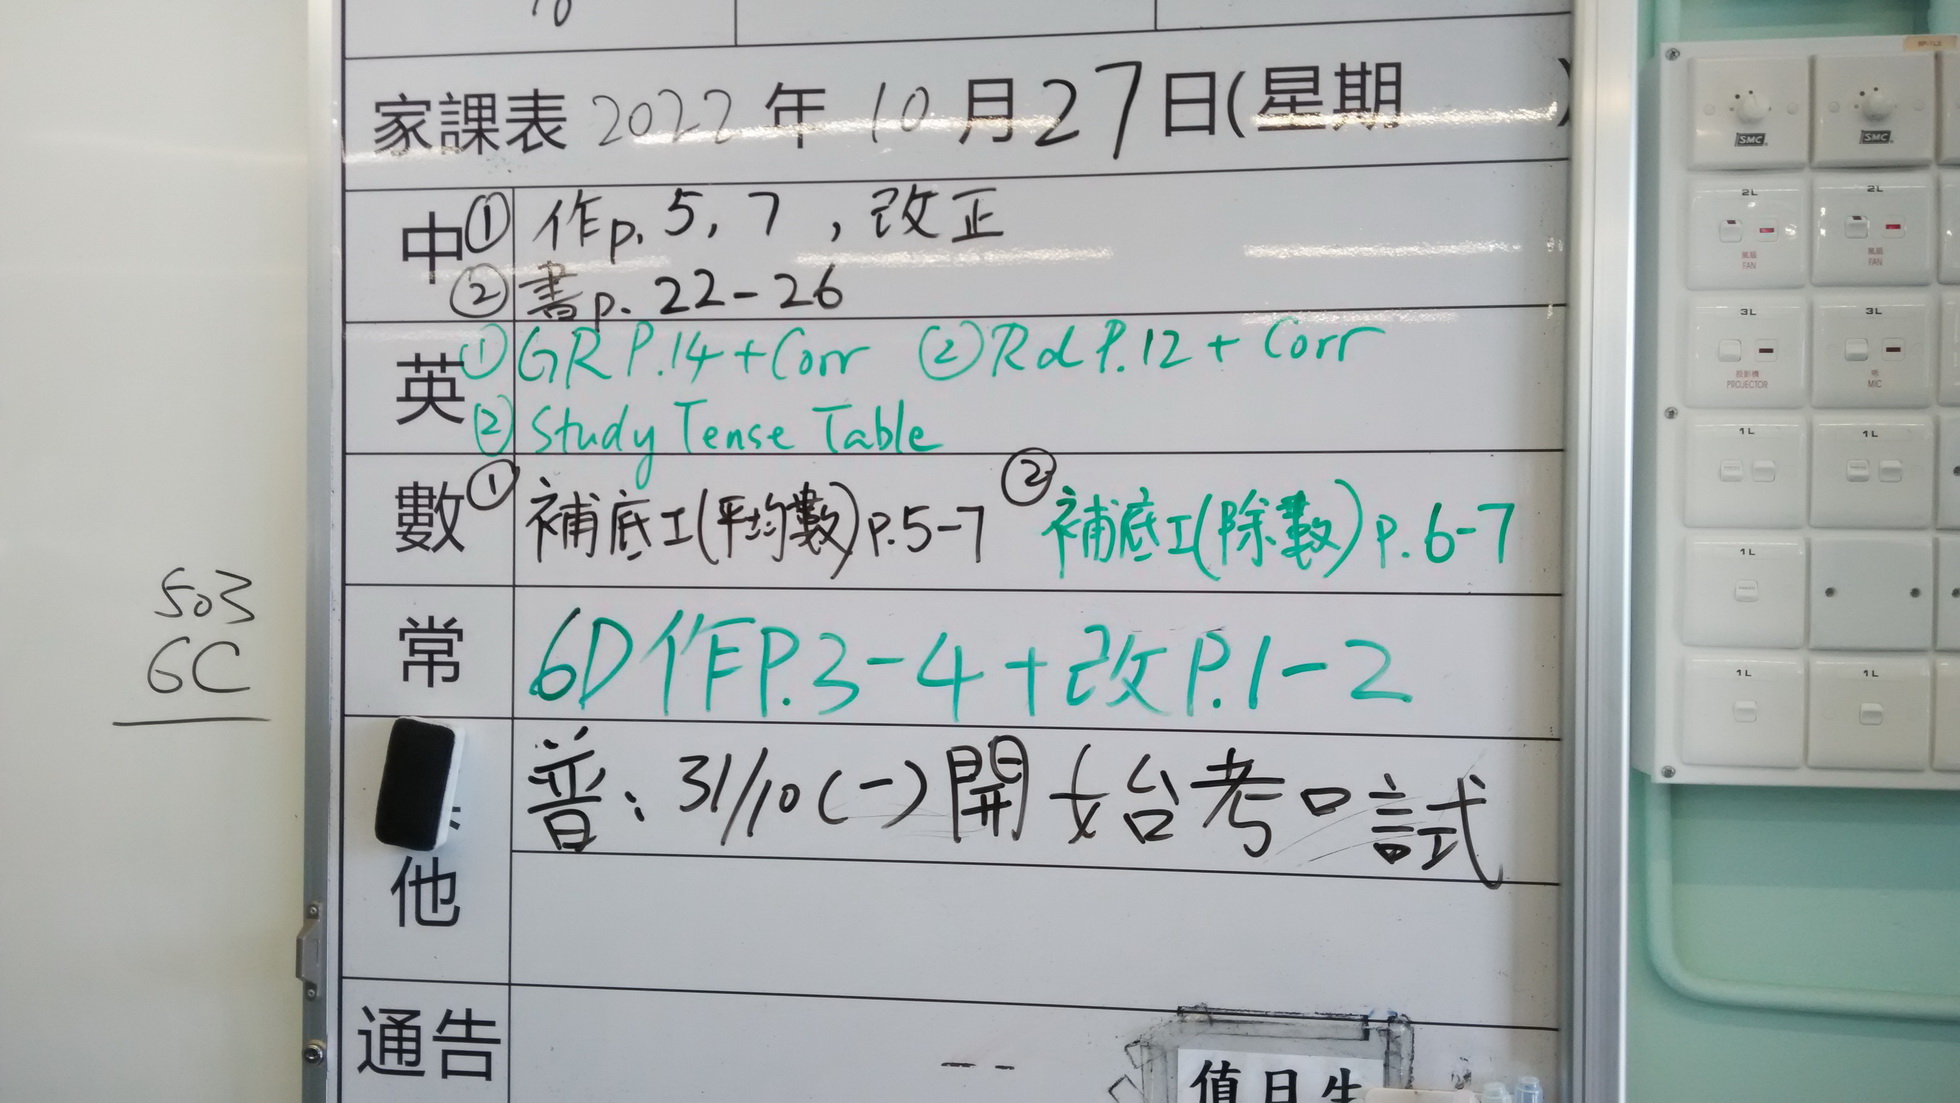 家課表 2022 年 10 月 27 日(星期 )
中 ① 作p. 5, 7 , 改正
② 書p. 22-26
英 ① GR P.14 + Corr ② Rd P.12 + Corr
② Study Tense Table
數 ① 補底工(平均數) p.5-7 ② 補底工(除數) p.6-7
常 6D 作P.3-4 + 改P.1-2
普: 31/10 (一) 開始考口試
他
通告
值日生
503
6C
SMC
SMC
2L
2L
風扇
FAN
風扇
FAN
3L
3L
投影機
PROJECTOR
咪
MIC
1L
1L
1L
1L
1L